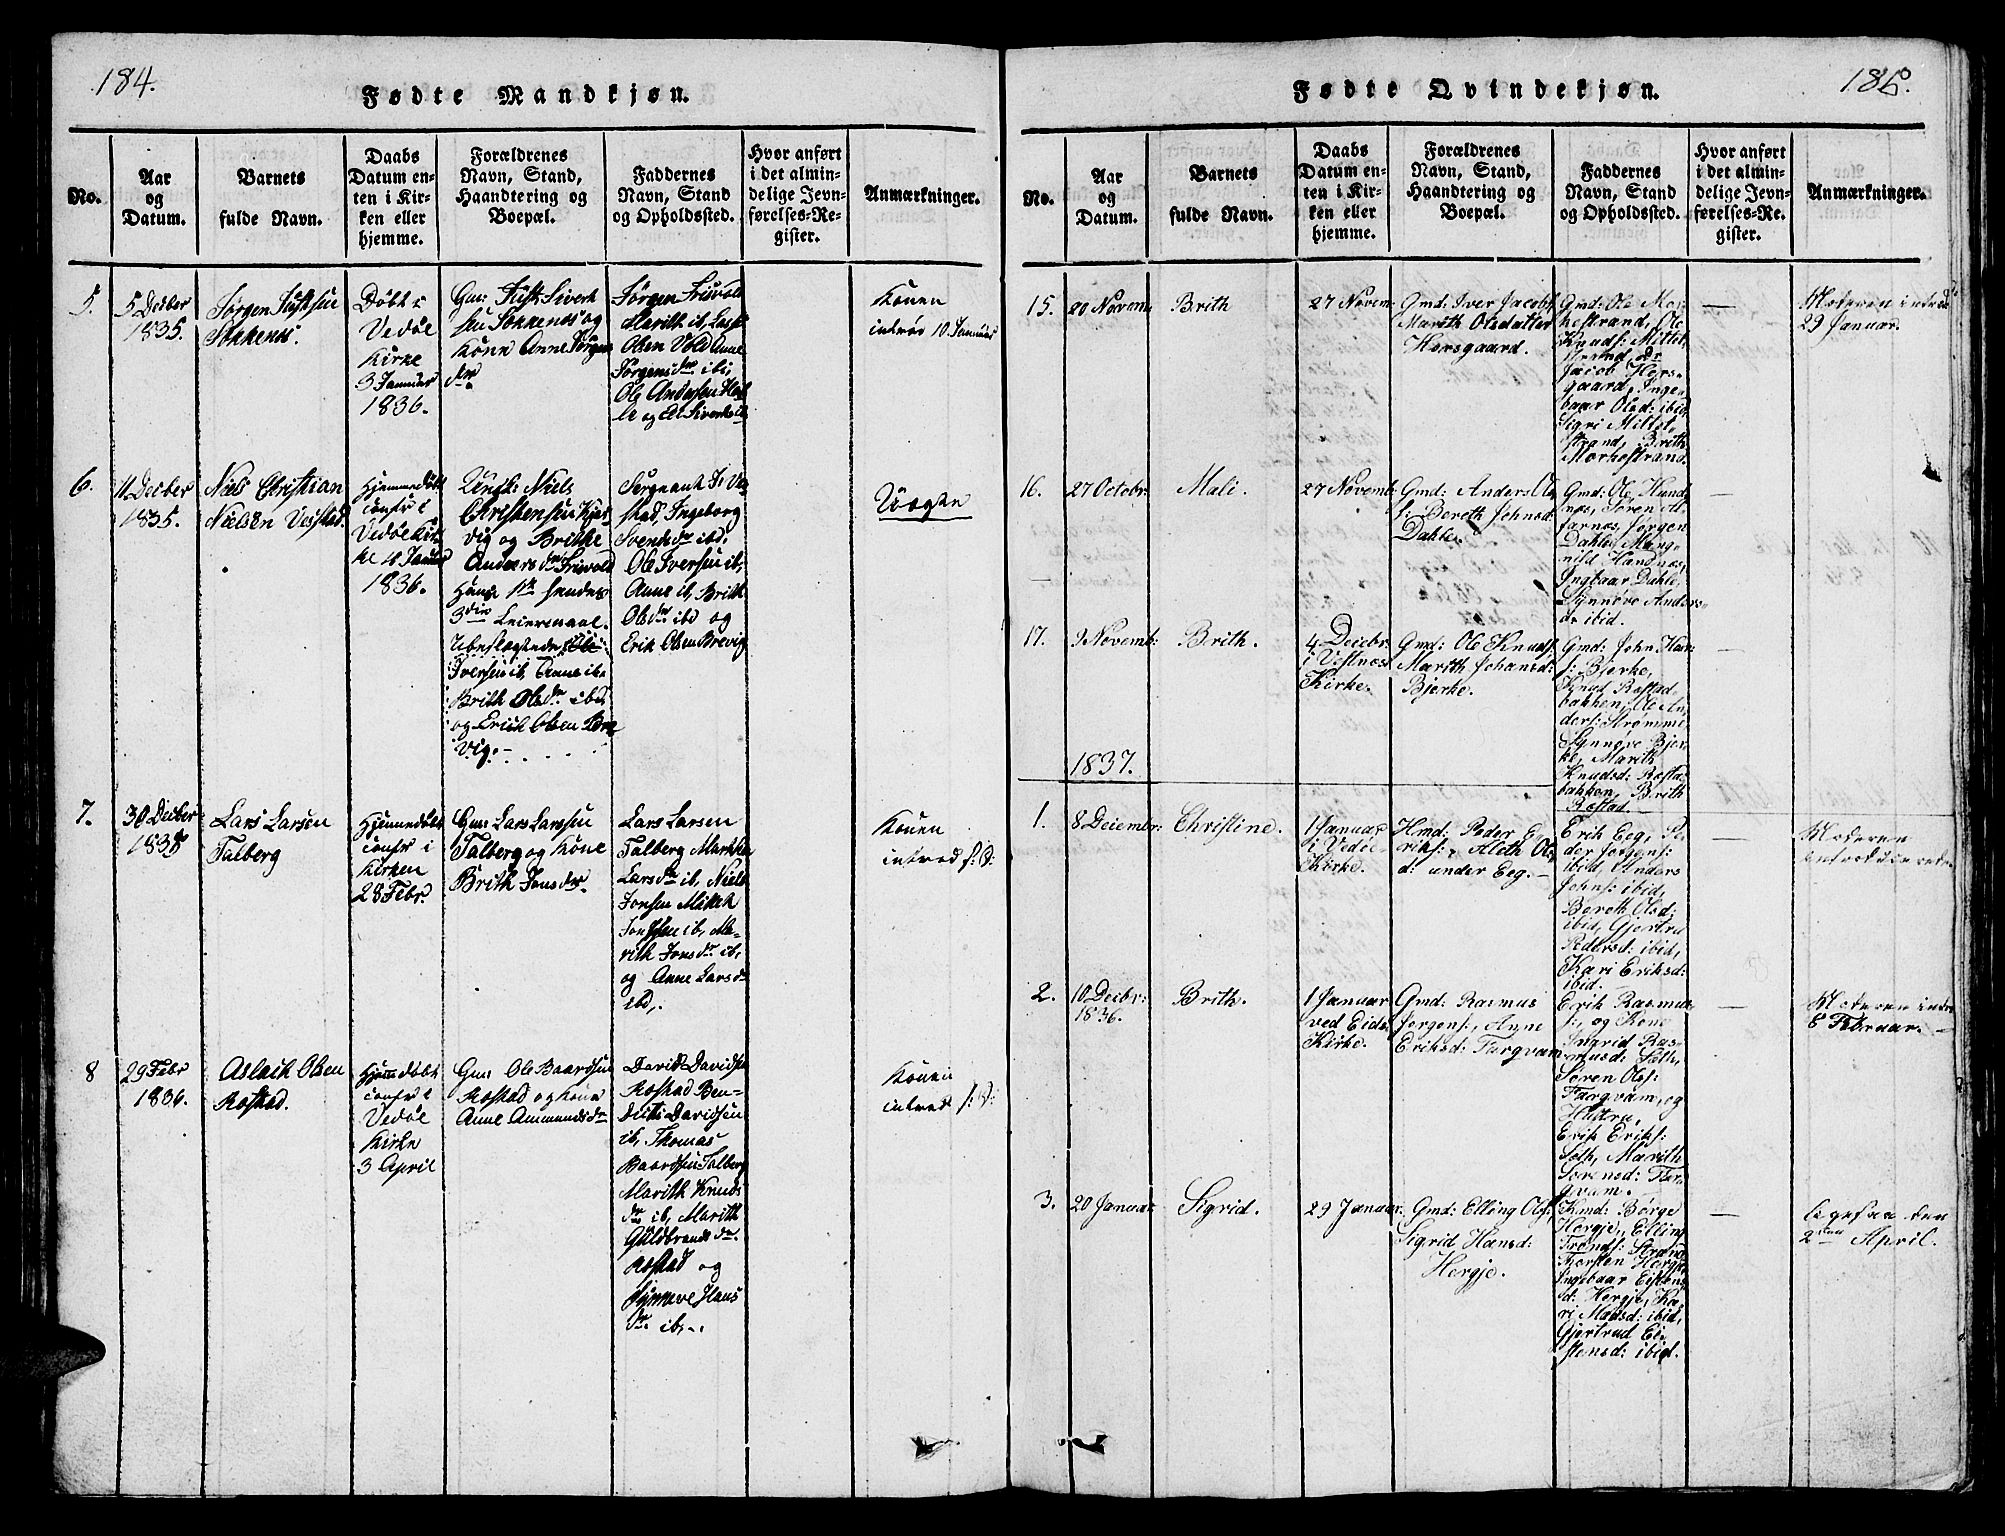 184.
Fødte Mandkjøn.
No.
Aar
og
Datum.
Barnets
fulde Navn.
Daabs
Datum en-
ten i Kir-
ken eller
hjemme.
Forældrenes
Navn, Stand,
Haandtering og
Boepæl.
Faddernes
Navn, Stand
og Opholdssted.
Hvor anført
i det almin-
delige Jevn-
førelses-Re-
gister.
Anmærkninger.
5.
5 Decber
1835.
Jørgen
Døbt i
Vedøe
Kirke
3 Januar
1836.
Gm:
og
Kone Anne Jørgens
dr.
Jørgen Frisvold
Marith ib,
Olsen Vold Anne
Jørgensdr ibi,
Ole Andersen
Konen
introd 10 Januar
6.
11 Decber
1835.
Niels Christian
Nielsen
Hjemmedøbt
confr i
Vedøe Kir-
ke 10 Januar
1836.
Niels
Christensen
vig og Brithe
Andersdr Frisvold
Hans 1ste hendes
3die Leiermaal.
Iversen ib, Anne ib
Brith Olsdr ibd
og Erich Olsen Bre
vig.
Sergeant
stad, Ingeborg
Svendsdr ibd,
Ole Iversen ib,
Anne ib, Brith
Olsdr ibd og
Erik Olsen Brevig
Uægte
7.
30 Decber
1835
Lars Larsen
Talberg
Hjemmedøbt
confr i
Kirken
28 Febr
Gm: Lars Larsen
Talberg og Kone
Brith Jonsdr.
Lars Larsen
Talberg
Larsdr ib, Niels
Jonsen
ib, Ma-
rith Jonsdr ib,
og Anne Larsdr
ibd.
Konen
introd s: D:
8
29 Febr
1836.
Aslach Olsen
Rostad.
Hjemdøbt
confr i
Vedøe
Kirke
3 April
Gm: Ole Baardsen
Rostad og Kone
Anne Ammundsdr
David Davidsen
Rostad Ben-
Davidsen
ib, Thomas
Baardsen Talberg
Marith Knuds
dr ib, Marith
Guldbrandsdr
Rostad og
Synneve Hans
dr ib.
Konen
introd s: D:
186.
Fødte Qvindekjøn.
No.
Aar
og
Datum.
Barnets
fulde Navn.
Daabs
Datum en-
ten i Kir-
ken eller
hjemme.
Forældrenes
Navn, Stand,
Haandtering og
Boepæl.
Faddernes
Navn, Stand
og Opholdssted.
Hvor anført
i det almin-
delige Jevn-
førelses-Re-
gister.
Anmærkninger.
15.
20 Novem:
Brith
27 Novem:
Gmd: Iver Jacobs:
Marith Olsdatter
Horsgaard.
Gmd: Ole Mor-
kestrand, Ole
Knuds: Mittet,
Jacob Hors-
gaard, Inge-
baar Olsd: ibid,
Sigri Mittet,
strand, Brith
Morkestrand.
—
Moderen introd
29 Januar.
16.
27 Octobr:
Mali.
27 Novemb:
Gmd: Anders Ole
s: Bereth Johnsd:
Dahle.
Gmd: Ole Hand-
næs, Søren Al-
farnæs, Jørgen
Dahle, Mag-
nild Handnæs,
Ingbaar Dahle,
Synnøve Anders-
d: ibid.
—
17.
9 Novemb:
Brith.
4 Decbr:
i Vestnæs
Kirke.
Gmd: Ole Knuds:
Marith Johansd:
Bjerke.
Gmd: John Han
s: Bjerke,
Knud Rostad-
bakken, Ole An-
ders: Strømme,
Synnøve Bjer-
ke, Marith
Knudsd: Rosta-
bakken, Brith
Rostad.
—
1837.
1.
8 Decembr:
Christine.
1 Januar
i Vedøe
Kirke.
Hmd: Peder E-
riks:, Aleth Ols
d: under Eeg.
Erik Eeg, Pe-
der Jørgens:
ibid, Anders
Johns: ibid,
Bereth Olsd:
ibid, Gjertru
Pedersd: ibid,
Kari Eriksd:
ibid.
—
Moderen
introduceret
2.
10 Decbr:
1836.
Brith.
1 Januar
ved Eids
Kirke.
Gmd: Rasmus
Jørgens:, Anne
Eriksd: Torgvam
Erik Rasmus
s:, og Kone
Ingrid Ras-
musd: Soth,
Søren Ols:
Torgvam, og
Hustru,
Erik Eriks:
Soth, Marith
Sorensd: Tor-
gvam.
—
Moderen introd
6 Februar.
3.
20 Januar
Sigrid.
29 Januar
Gmd: Elling Ols:,
Sigrid Hansd:
Hergje.
Kmd: Børge
Hergje, Elling
Tronds: Strand,
Thorsten Hergje,
Ingebaar Eistens
d: Hergje, Ka-
ri Madsd: ibid,
Gjertrud Ei-
stensd: ibid.
—
den
2den April.